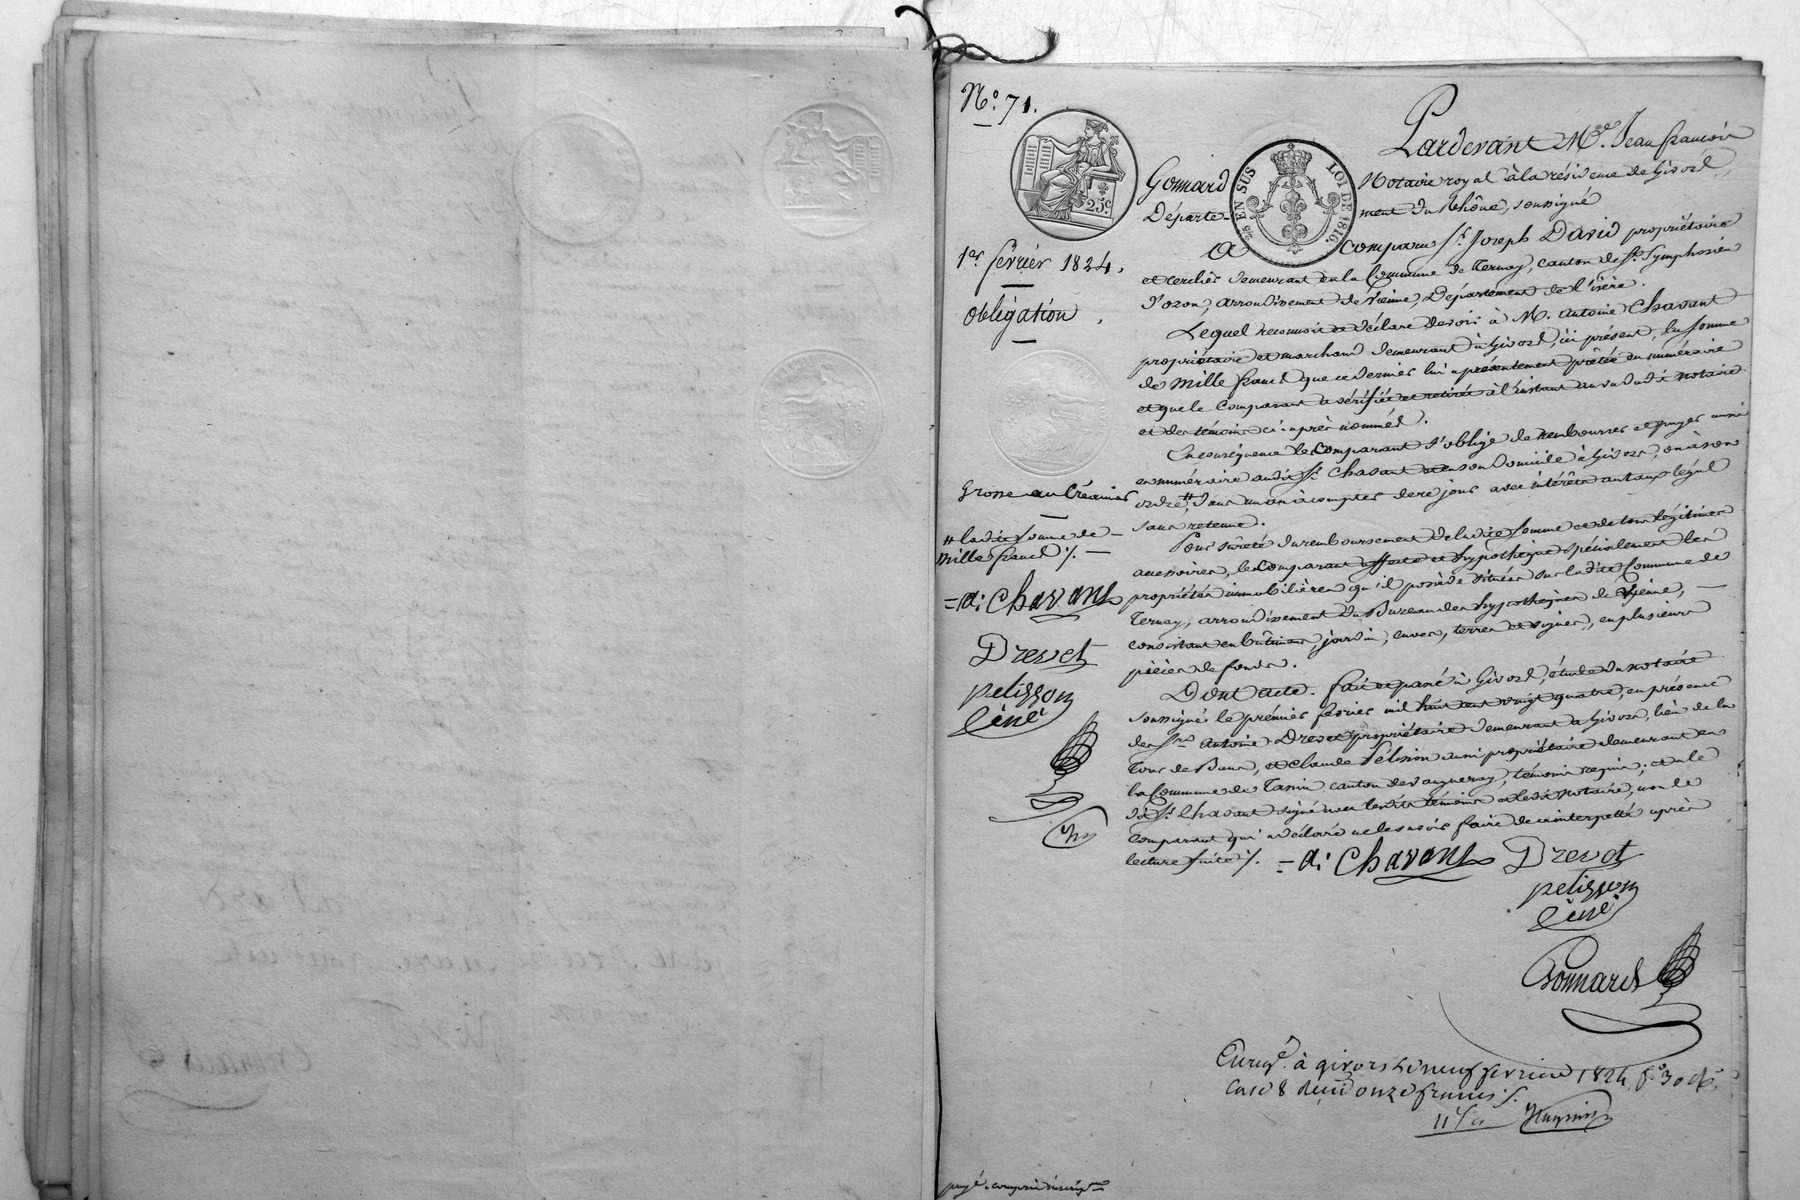 N.° 71.
Pardevant M.e Jean françois
Gonnard Notaire royal à la résidence de Givors,
Départe- ment du Rhône, soussigné
25 c
25 C EN SUS LOI DE 1816.
1er février 1824.
Obligation
A comparu Sr. Joseph David propriétaire
et cerclier demeurant en la Commune de Ternay, canton de St. Symphorien
d'ozon, arrondissement de Vienne, Département de l'isère.
Lequel reconnoit et déclare devoir à M. Antoine Chavant
propriétaire et marchand demeurant à Givors, ici présent, la somme
de Mille francs que ce dernier lui a présentement prêtée en numéraire
et que le Comparant a vérifiée et retirée à l'instant au vu du dit notaire
et des témoins ci-après nommés.
En conséquence le Comparant s'oblige de rembourser et payer aussi
en numéraire audit Sr. Chavant en son domicile à Givors, ou à son
ordre # dans un an à compter de ce jour avec intérêts au taux légal
sans retenue.
Grosse au Créancier
# ladite somme de
Mille francs ./.
= a: Chavant
Drevet
pelisson
Pour sûreté du remboursement de ladite somme et de tous légitimes
accessoires, le Comparant affecte et hypothèque spécialement les
propriétés immobilières qu'il possède situées sur ladite Commune de
Ternay, arrondissement du Bureau des hypothèques de Vienne,
consistant en bâtimens, jardin, cuves, terres et vignes, en plusieurs
pièces de fonds.
Dont acte. fait et passé à Givors, étude du notaire
soussigné le prémier février mil huit cent vingt quatre, en présence
des Srs. Antoine Drevet propriétaire demeurant à Givors, lieu de la
Tour de Bans, et Claude Pélisson aussi propriétaire demeurant en
la Commune de Tassin canton de Vaugneray, témoins requis; et a le
dit Sr. Chavant signé avec lesdits témoins et ledit notaire, non le
Comparant qui a déclaré ne le savoir faire de ce interpellé après
lecture faite ./. = a: Chavant Drevet
pelisson
Gonnard
Enregé. à givors le neuf février 1824. fo. 30
case 8 onze francs
11 f